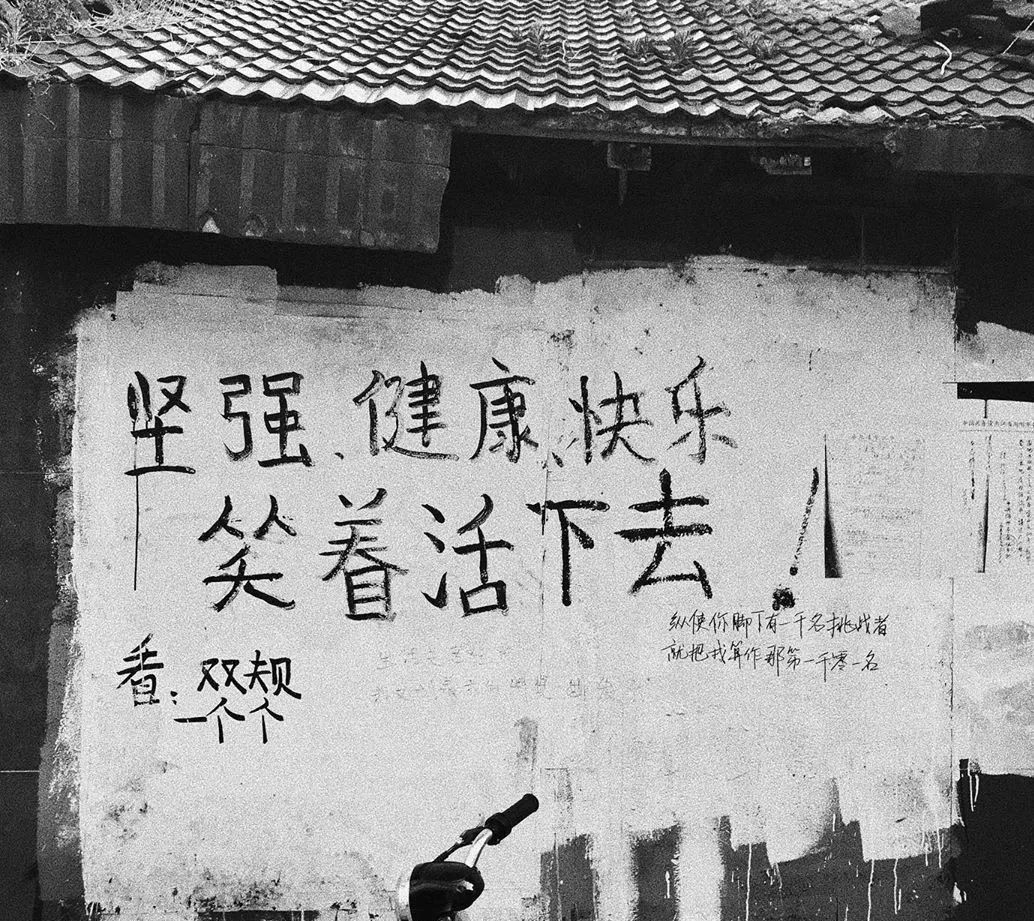 坚强、健康、快乐
笑着活下去!
纵使你脚下有一千名挑战者
就把我算作那第一千零一名
看:双规
一个个